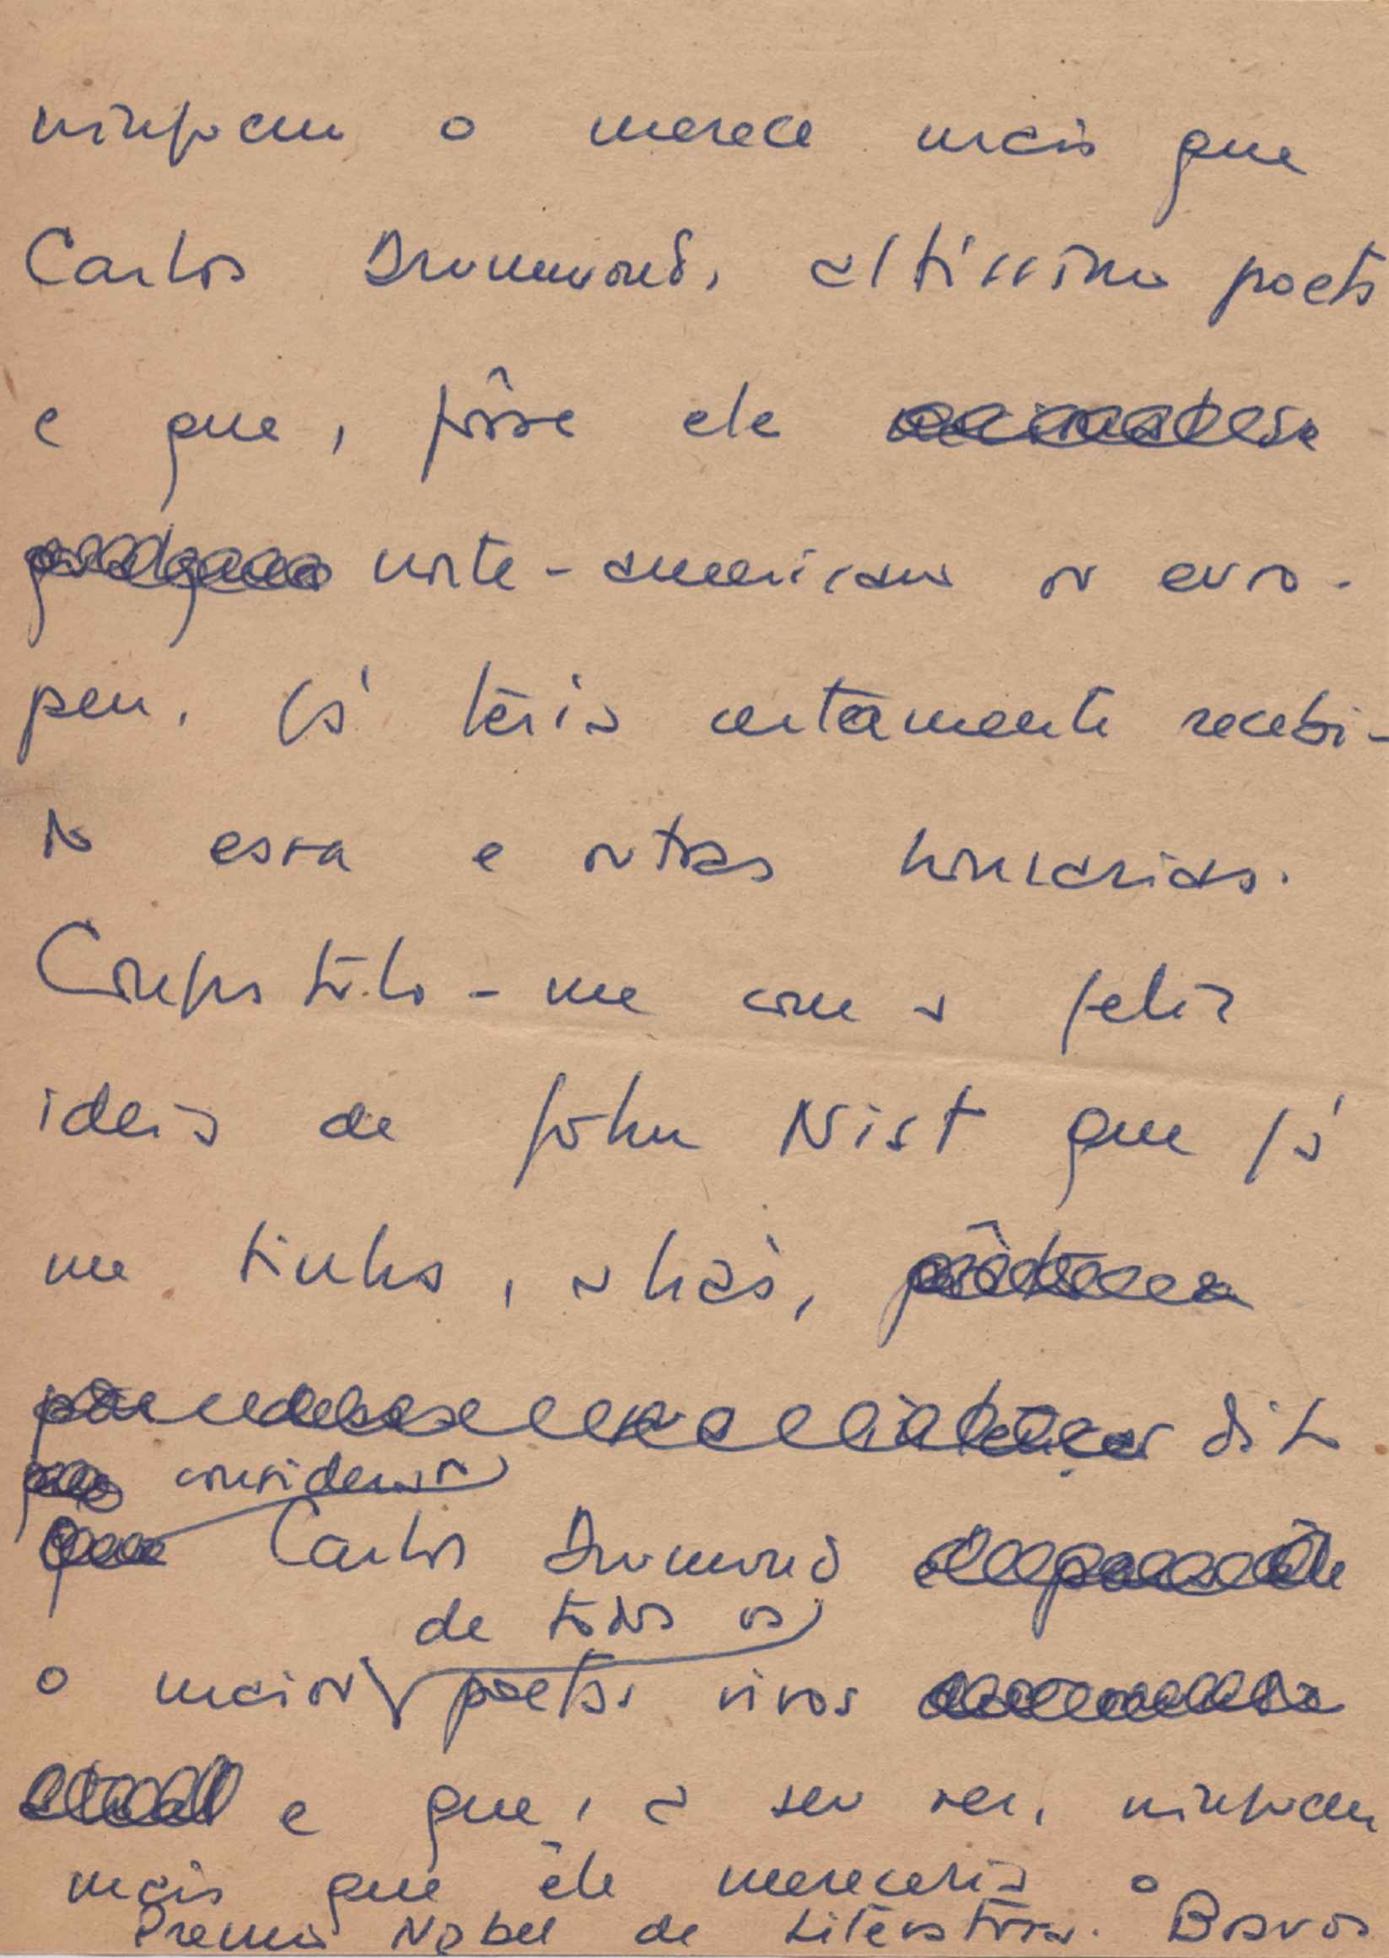 ninguem o merece mais que
Carlos Drummond, altissimo poeta
e que, fôsse ele
norte-americano ou euro-
peu, já teria certamente recebi-
do essa e outras honrarias.
Congratulo-me com a feliz
ideia de John Nist que já
me tinha, aliás,
dito
considerar
Carlos Drumond
de todos os
o maior poetas vivos
e que, a seu ver, ninguem
mais que êle mereceria o
Premio Nobel de Literatura. Bravos